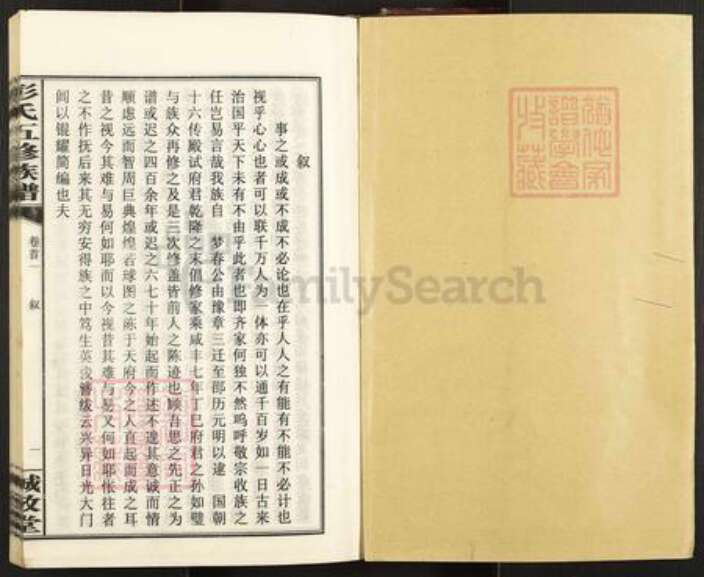 叙
事之或成或不成不必论也在乎人人之有能有不能不必计也
视乎心心也者可以联千万人为一体亦可以通千百岁如一日古来
治国平天下未有不由乎此者也即齐家何独不然呜呼敬宗收族之
任岂易言哉我族自 梦春公由豫章三迁至邵历元明以逮 国朝
十六传殿试府君乾隆之末倡修家乘咸丰七年丁巳府君之孙如璧
与族众再修之及是三次修盖皆前人之陈迹也顾吾思之先正之为
谱或迟之四百余年或迟之六七十年始起而作述不逮其意诚而情
顺虑远而智周巨典煌煌若球图之陈于天府今之人直起而成之耳
昔之视今其难与易何如耶而以今视昔其难与易又何如耶怅往者
之不作抚后来其无穷安得族之中笃生英俊簪绂云兴异日光大门
闾以锟耀简编也夫
彭氏五修族谱
卷首一
叙
一
诚敬堂
FamilySearch